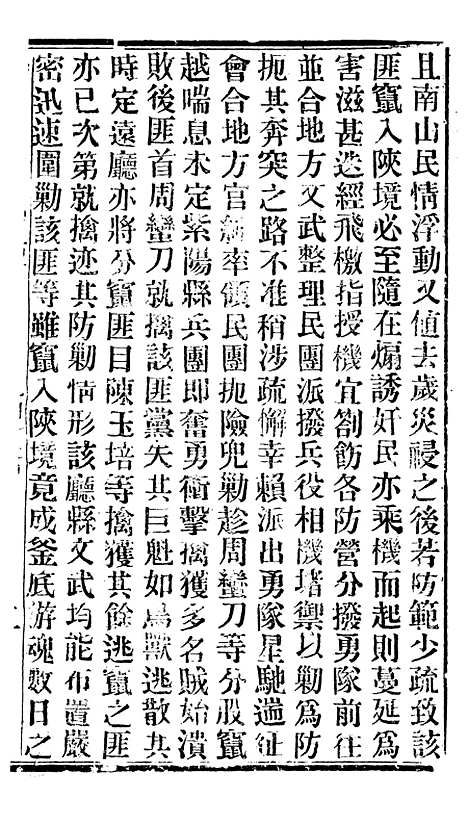 且南山民情浮動又值去歲災祲之後若防範少疏致該
匪竄入陝境必至隨在煽誘奸民亦乘機而起則蔓延爲
害滋甚迭經飛檄指授機宜劄飭各防營分撥勇隊前往
並合地方文武整理民團派撥兵役相機堵禦以勦爲防
扼其奔突之路不准稍涉疏懈幸賴派出勇隊星馳遄征
會合地方官紳率領民團扼險兜勦趁周蠻刀等分股竄
越喘息未定紫陽縣兵團即奮勇衝擊擒獲多名賊始潰
敗後匪首周蠻刀就擒該匪黨失其巨魁如鳥獸逃散其
時定遠廳亦將分竄匪目陳玉培等擒獲其餘逃竄之匪
亦已次第就擒迹其防勦情形該廳縣文武均能布置嚴
密迅速圍勦該匪等雖竄入陝境竟成釜底游魂數日之